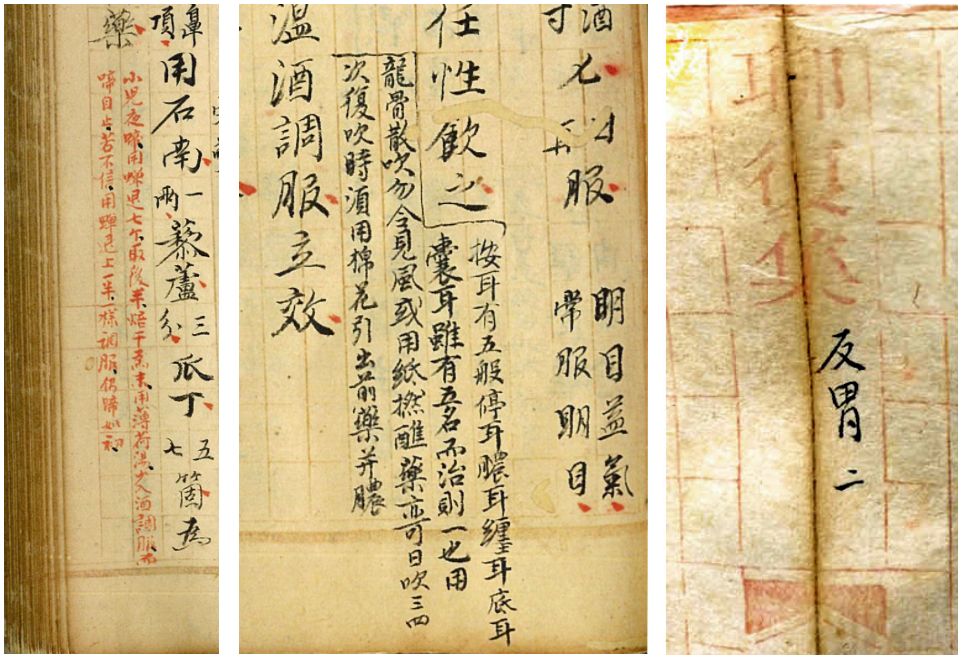 鼻
頂
用石南一兩藜蘆三分瓜丁五七箇為
藥
小兒夜啼用蟬退七个取後半焙干為末用薄荷湯少入酒調服不
啼目占若不信用蟬退上一半一樣調服仍啼如初
酒
寸
匕
服
明目益氣
常服明目
任性飲之
按耳有五般停耳膿耳纏耳底耳
囊耳雖有五名而治則一也用
龍骨散吹勿令見風或用紙撚蘸藥亦可日吹三四
次復吹時須用棉花引出前藥并膿
温酒調服立效
反胃二